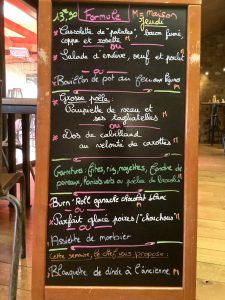 13€50 Formule M= maison
Jeudi
Cassolette de "patates", bacon fumé,
coppa et rosette M
ou
Salade d'endive, oeuf et poulet
ou
Bouillon de pot au feu
Grosse poêle
Paupiette de veau et
ses tagliatelles M
ou
Dos de cabillaud
au velouté de carottes M
Garnitures: frites, riz, mogettes,
poireaux, haricots verts ou poêlée de brocolis
Burn Roll ganache chocolat blanc
ou
Parfait glacé poires/"chouchou" M
ou
Assiette de morbier
Cette semaine, le chef vous propose:
Blanquette de dinde à l'ancienne M